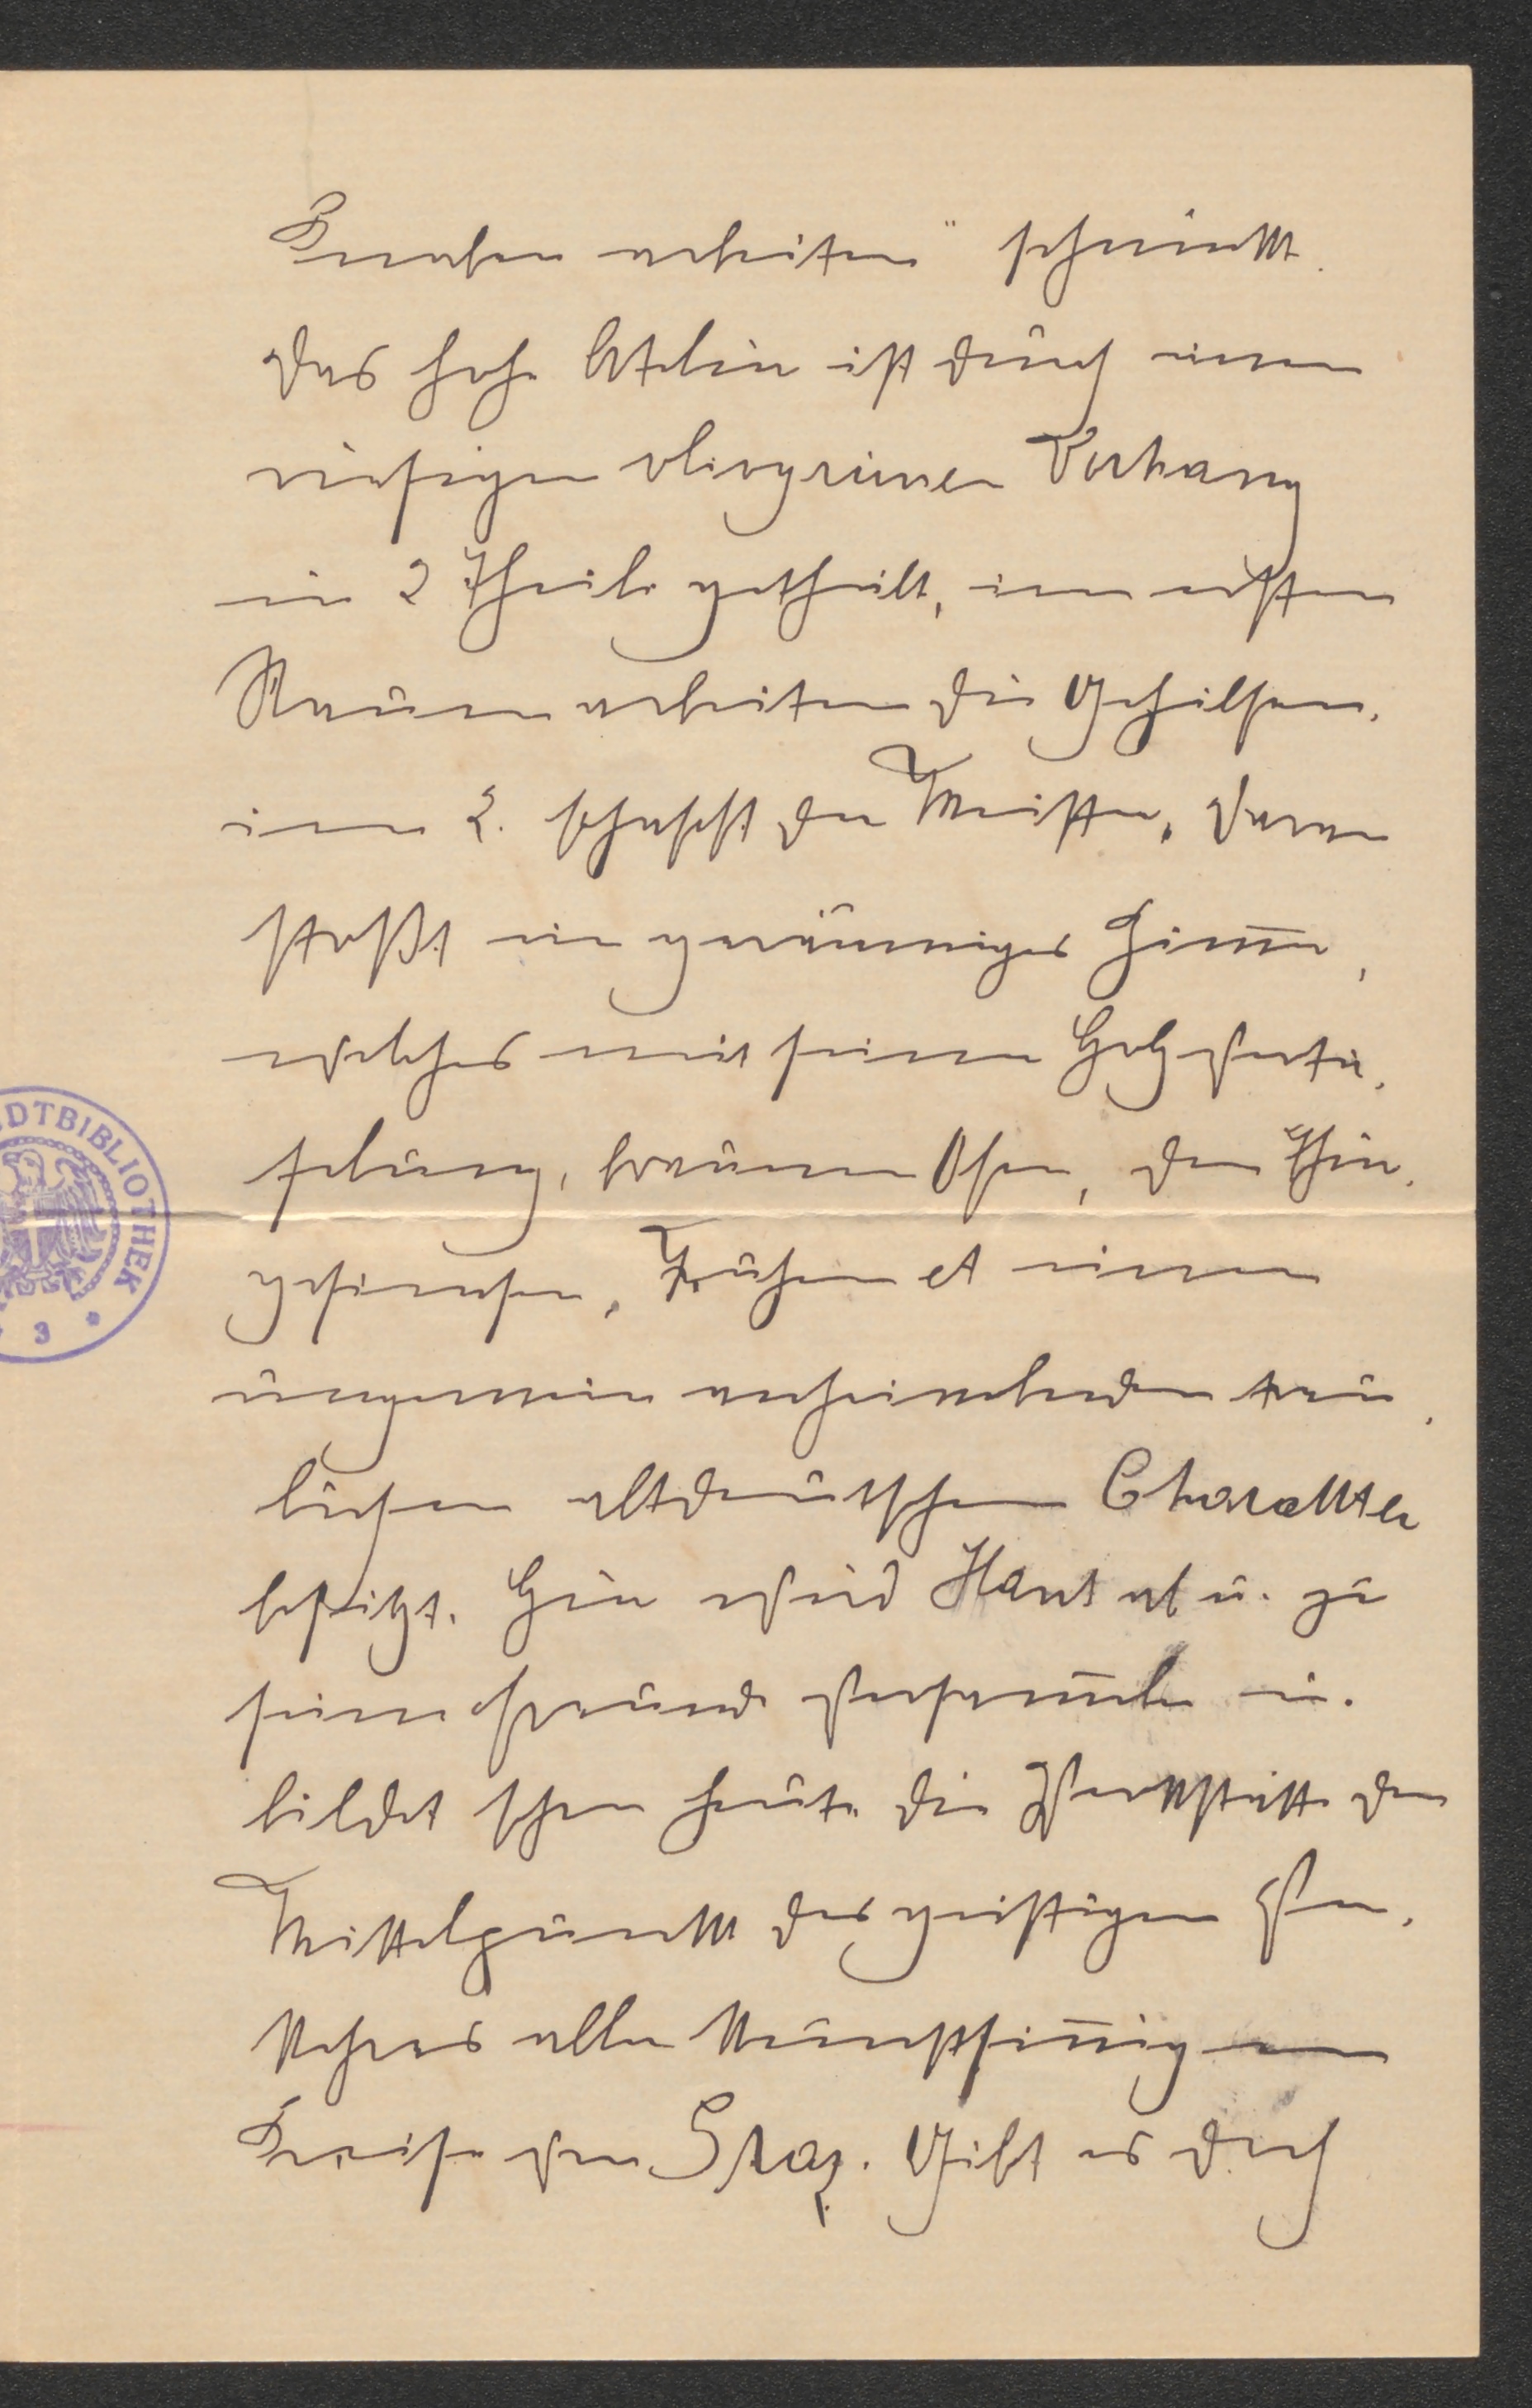 Knaben arbeiten" schmückt.
Das hohe Atelier ist durch einen
riesigen olivgrünen Vorhang
in 2 Theile getheilt, im ersten
Raum arbeiten die Gehilfen,
im 2. schafft der Meister. Daran
stoßt ein geräumiges Zimmer,
welches mit seiner Holzvertä-
felung, braunen Ofen, den Thür-
gesimsen, Truhen et einen
ungemein anheimelnden trau-
lichen altdeutschen Charakter
besitzt. Hier wird Hans ab u. zu
seine Freunde versammeln u.
bildet schon heute die Werkstatt den
Mittelpunkt des geistigen Ver-
kehres aller kunstsinnigen
Kreise von Graz. Gibt es doch
DTBIBLIOTHEK
3